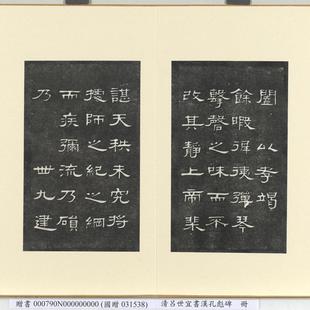 闔以孝竭
餘暇彈琴
擊磬之味而不
改其靜上帝棐
諶天秩未究將
據師之紀之綱
而疾彌流乃磒
乃 卌九建
贈書 000790N000000000 (國贈 031538) 清呂世宜書漢孔彪碑 冊